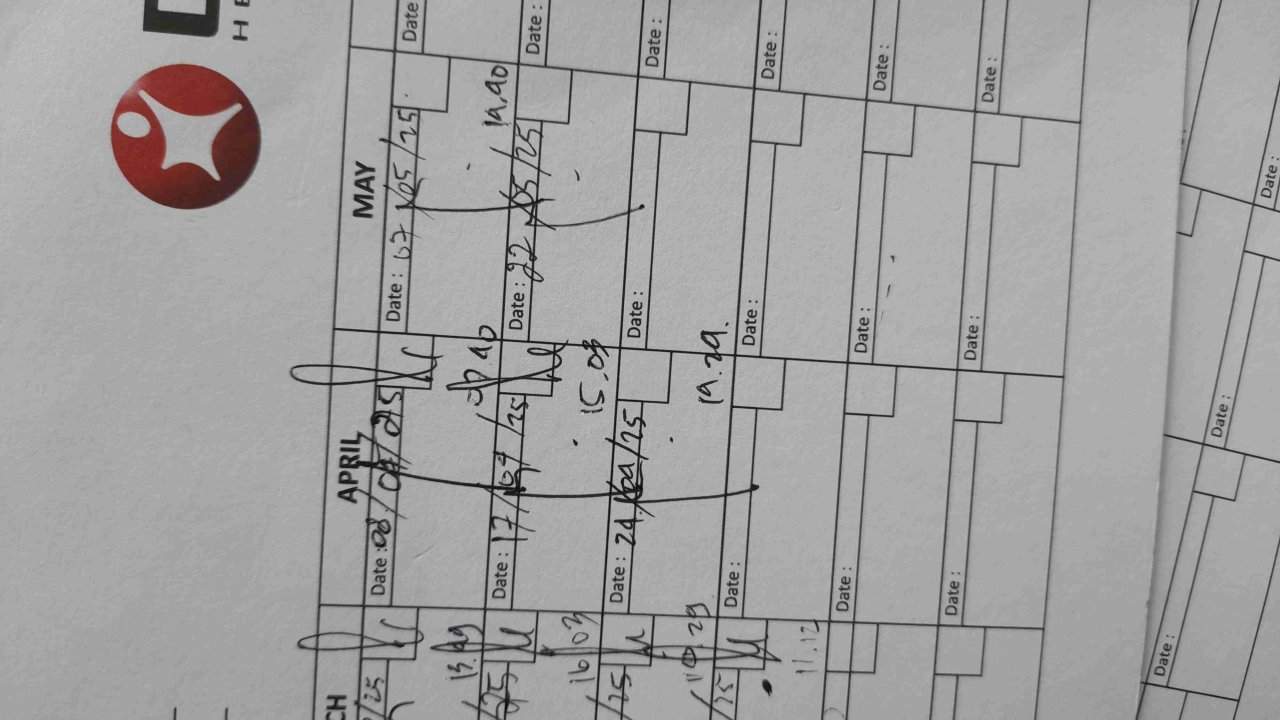 H E
CH
APRIL
MAY
/25
Date : 08/04/25
Date : 07/05/25
Date
13.49
14.40
/25
Date : 17/04/25
Date : 22/05/25
Date :
16.03
15.03
/25
Date : 24/04/25
Date :
Date :
10.29
14.29.
/25
Date :
Date :
Date :
11.12
Date :
Date :
Date :
Date :
Date :
Date :
Date :
Date :
Date :